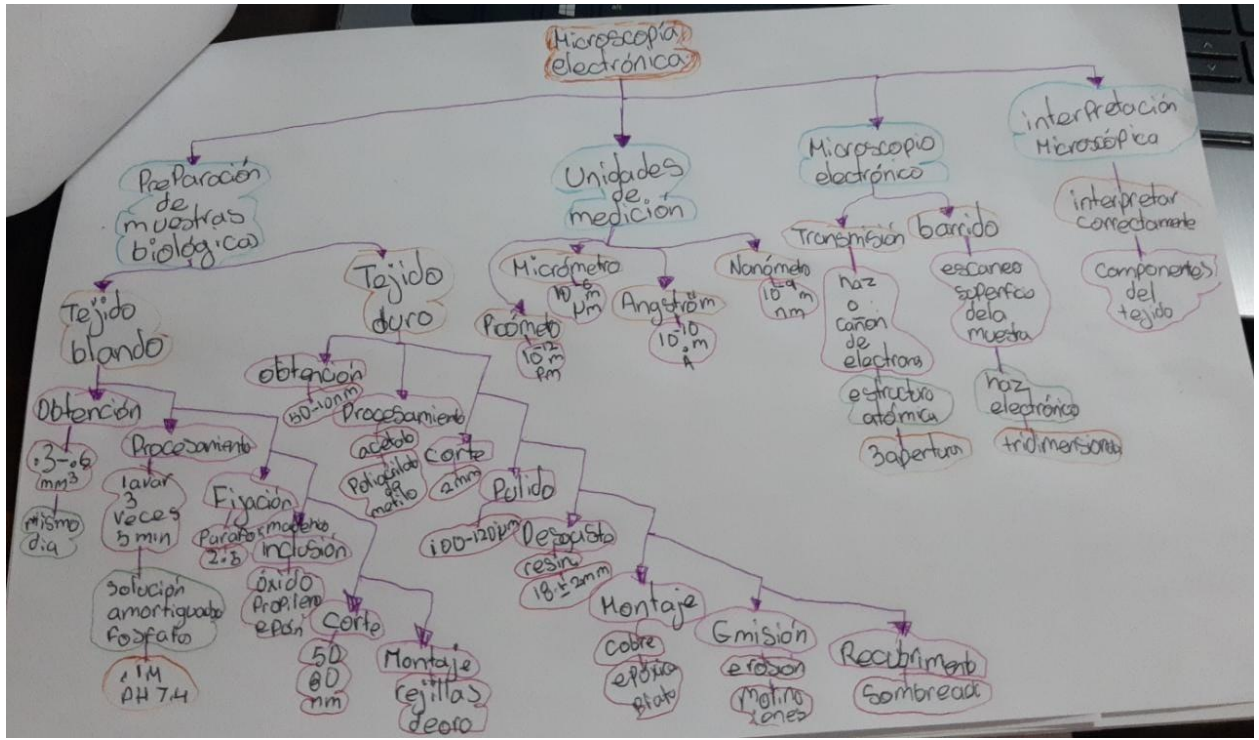 Microscopía
electrónica
Preparación
de
muestras
biológicas
Tejido
blando
Obtención
.3-.6
mm³
mismo
dia
Procesamiento
lavar
3
veces
5 min
solución
amortiguado
fosfato
.1M
PH 7.4
Fijación
2.5
inclusión
óxido
Propileno
epón
Corte
50
60
nm
Montaje
rejillas
deoro
Tejido
duro
Obtención
50-10nm
Procesamiento
acetato
metilo
Corte
2mm
Pulido
100-120µm
Desgaste
resina
18±2mm
Montaje
cobre
epóxica
Plato
erosión
molino
iones
Recubrimento
Sombreado
Unidades
de
medición
Picómetro
10⁻¹²m
pm
Micrómetro
10⁻⁶m
µm
Angström
10⁻¹⁰m
Å
Nanómetro
10⁻⁹m
nm
Microscopio
electrónico
Transmisión
haz
o
cañon
de
electrons
estructura
atómica
3apertura
barrido
escaneo
superfcio
dela
muesta
haz
electrónico
tridimensional
interpretación
Microscópica
interpretar
correctamente
componentes
del
tejido